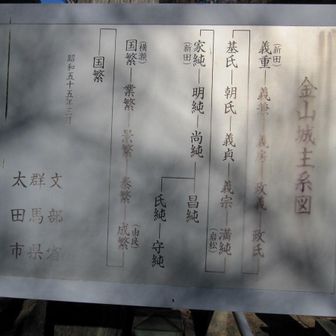 金山城主系図
(新田)
義重―義兼―義房―政義―政氏
基氏―朝氏―義貞―義宗―満純
(岩松)
家純―明純―尚純
(新田)
昌純
氏純―守純
(横瀬)
国繁―業繁―景繁―泰繁―成繁
(由良)
国繁
昭和五十五年三月
文部省
群馬県
太田市